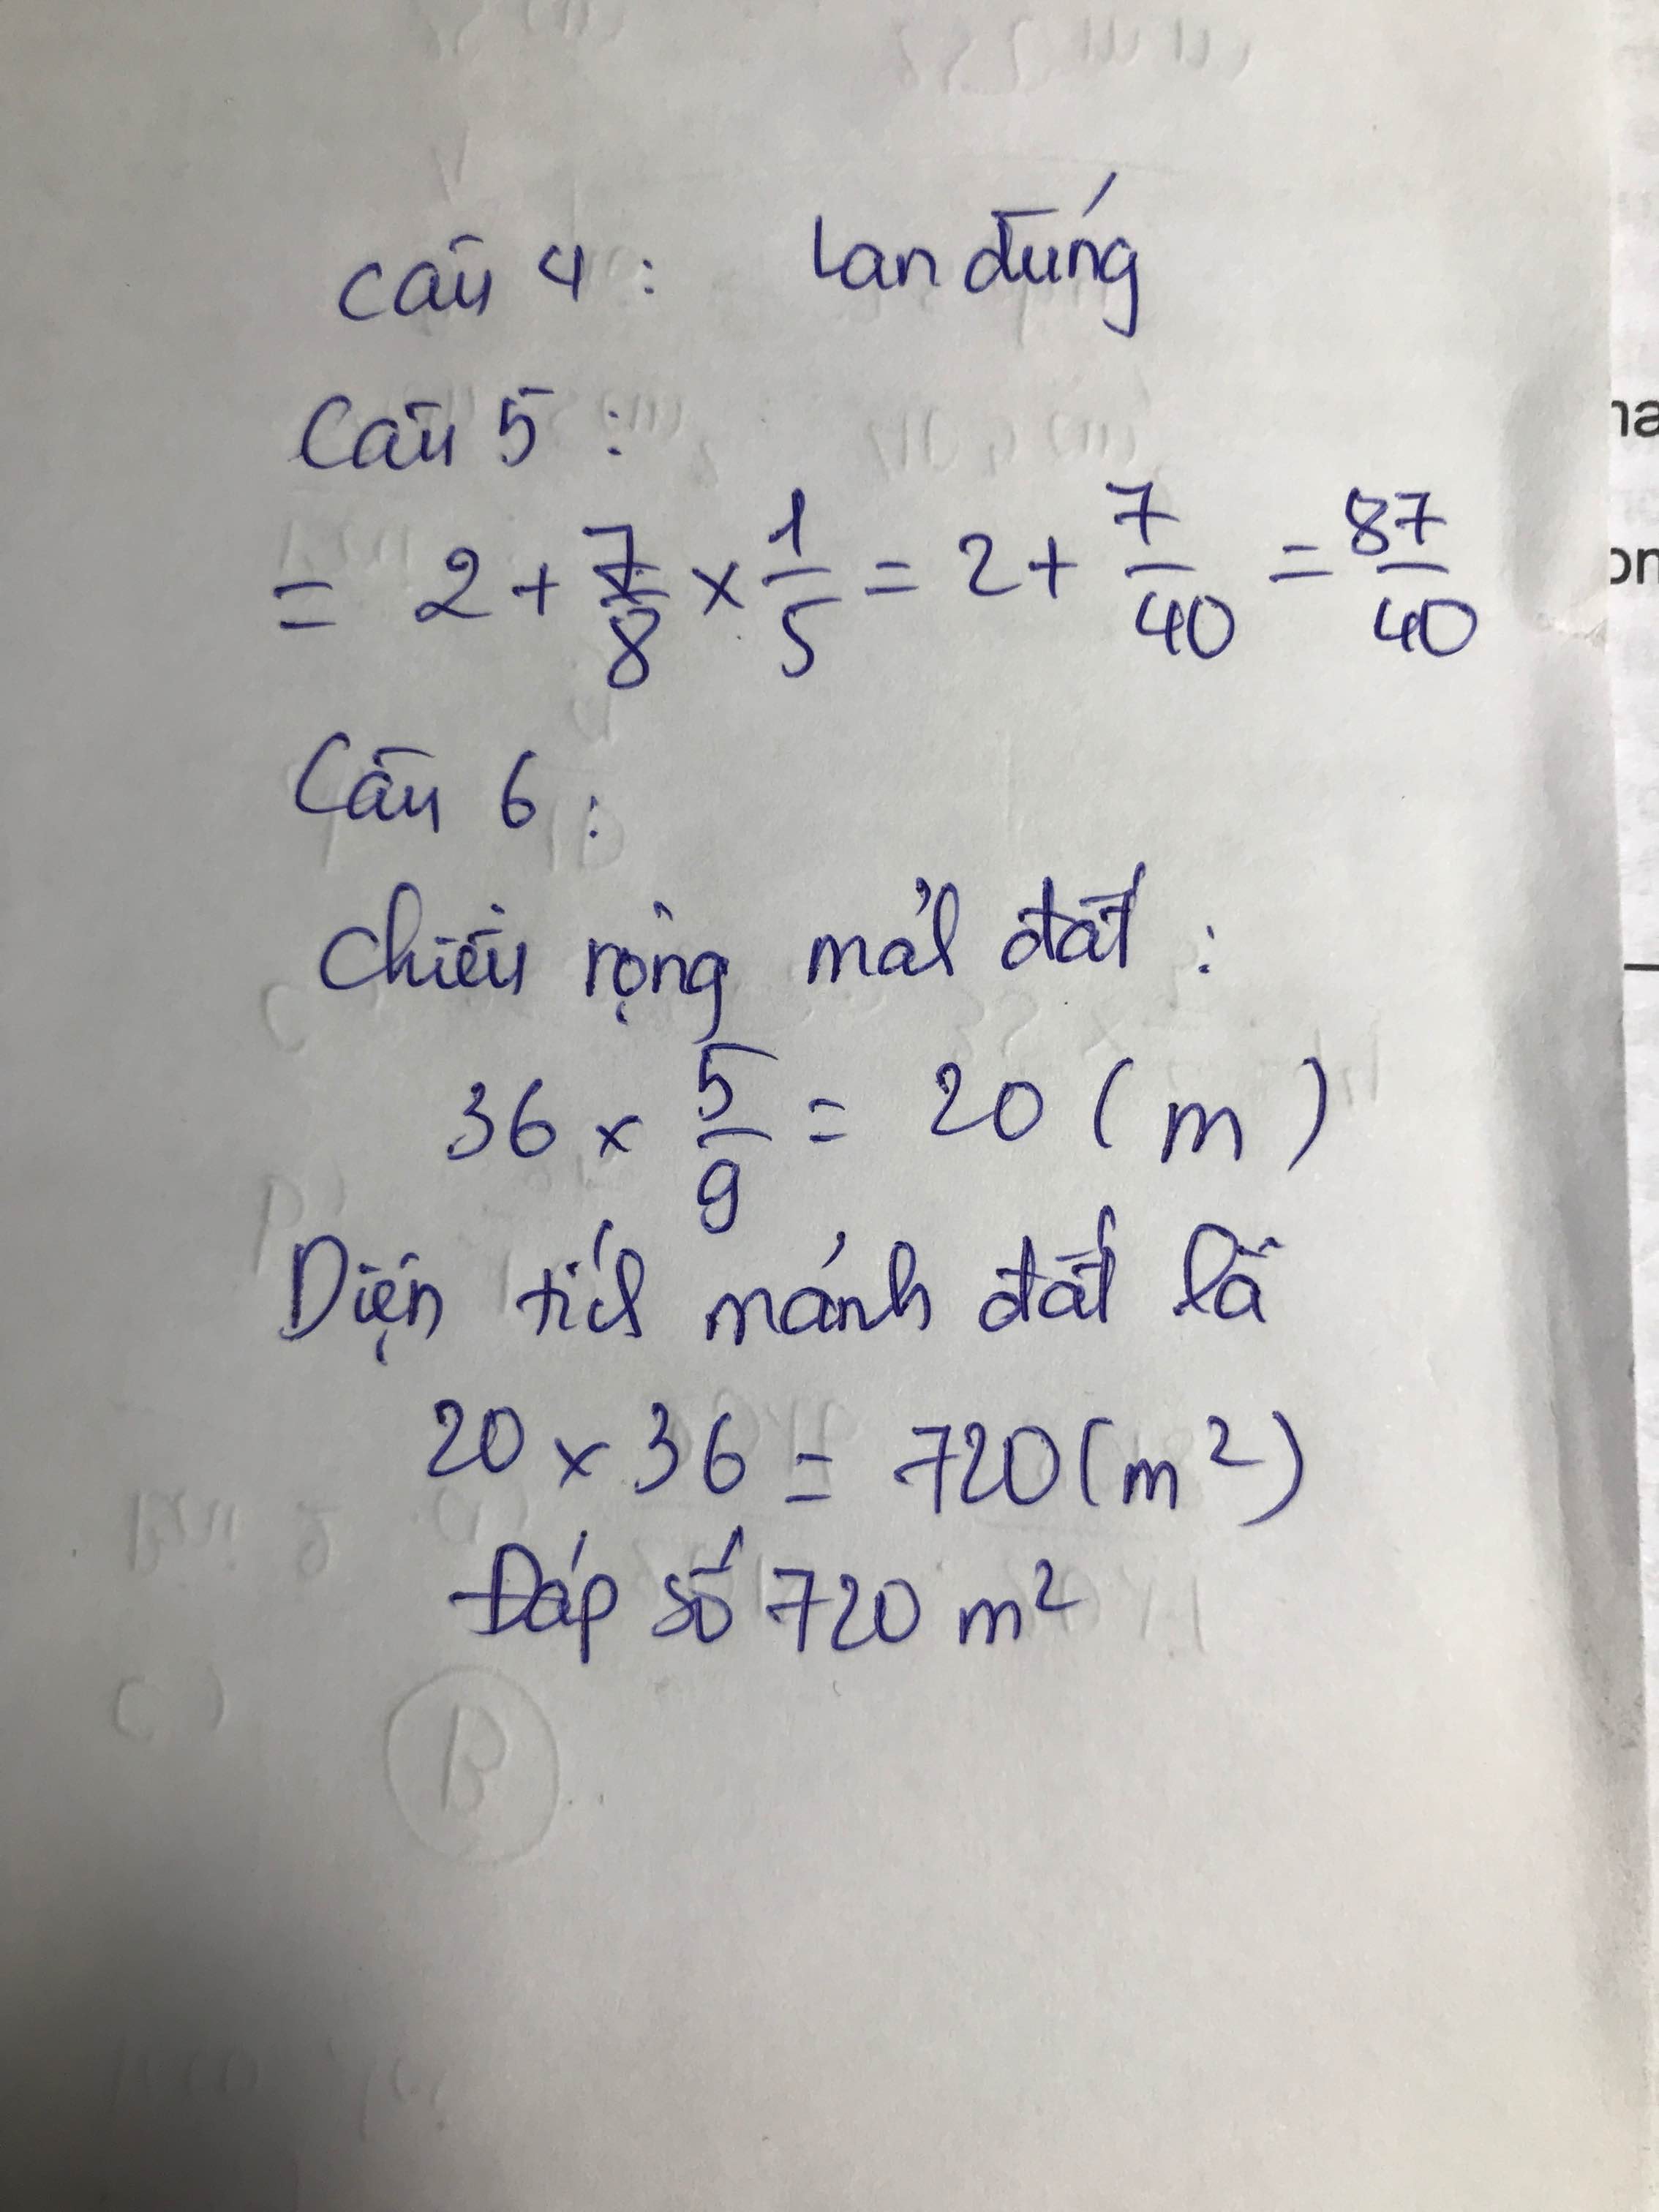 Câu 4 : Lan đúng
Câu 5 :
= 2 + 7/8 × 1/5 = 2 + 7/40 = 87/40
Câu 6 :
Chiều rộng mảh đất :
36 × 5/9 = 20 ( m )
Diện tích mảnh đất là
20 × 36 = 720 ( m² )
Đáp số 720 m²